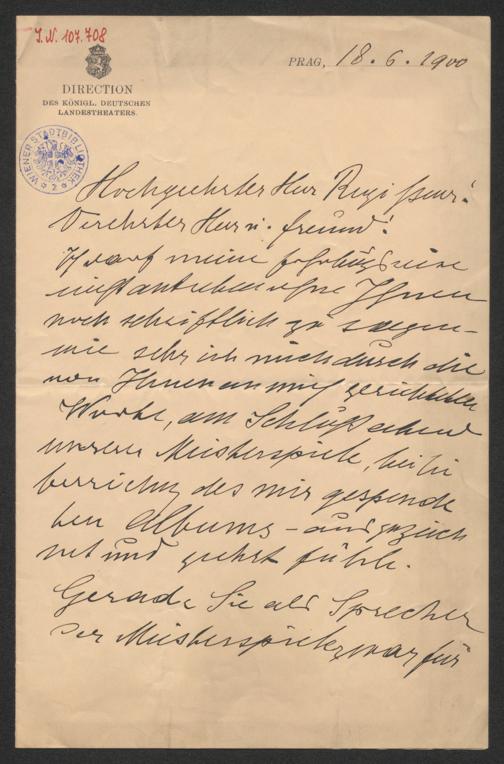 I.N. 107.708
DIRECTION
DES KÖNIGL. DEUTSCHEN
LANDESTHEATERS.
PRAG, 18.6.1900
WIENER STADTBIBLIOTHEK
Hochgeehrter Herr Regisseur!
Verehrter Herr u. Freund!
Ich darf meine reise
nicht antreten ohne Ihnen
noch schriftlich zu sagen –
wie sehr ich mich durch die
von Ihnen an mich gerichteten
Worte, am Schlußabend
unserer Meisterspiele, bei Ü
berreichung des mir gespende
ten Albums – ausgezeich
net und geehrt fühle.
Gerade Sie als Sprecher
der Meisterspiele, war für